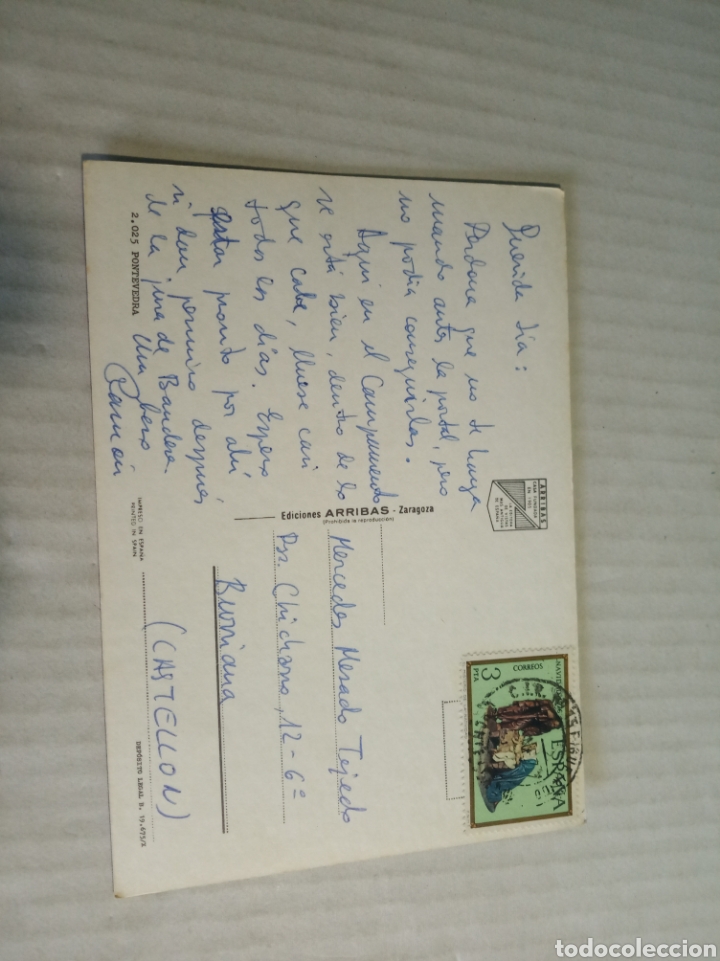 Querida tía:
Perdona que no te haya
mandado antes la postal, pero
no podía conseguirlas.
Aquí en el Campamento
se está bien, dentro de lo
que cabe, llueve casi
todos los días. Espero
estar pronto por ahí
si dan permiso después
de la jura de Bandera.
Un beso
Ramón
2.025 PONTEVEDRA
IMPRESO EN ESPAÑA
PRINTED IN SPAIN
Ediciones ARRIBAS - Zaragoza
(Prohibida la reproducción)
ARRIBAS
CASA FUNDADA
EN 1903
Mercedes Mesado Tejedo
Ps. Chicharro, 12-6º
Burriana
(CASTELLON)
3
PTA
CORREOS
NAVIDAD
ESPAÑA
C.I.R.
todocoleccion